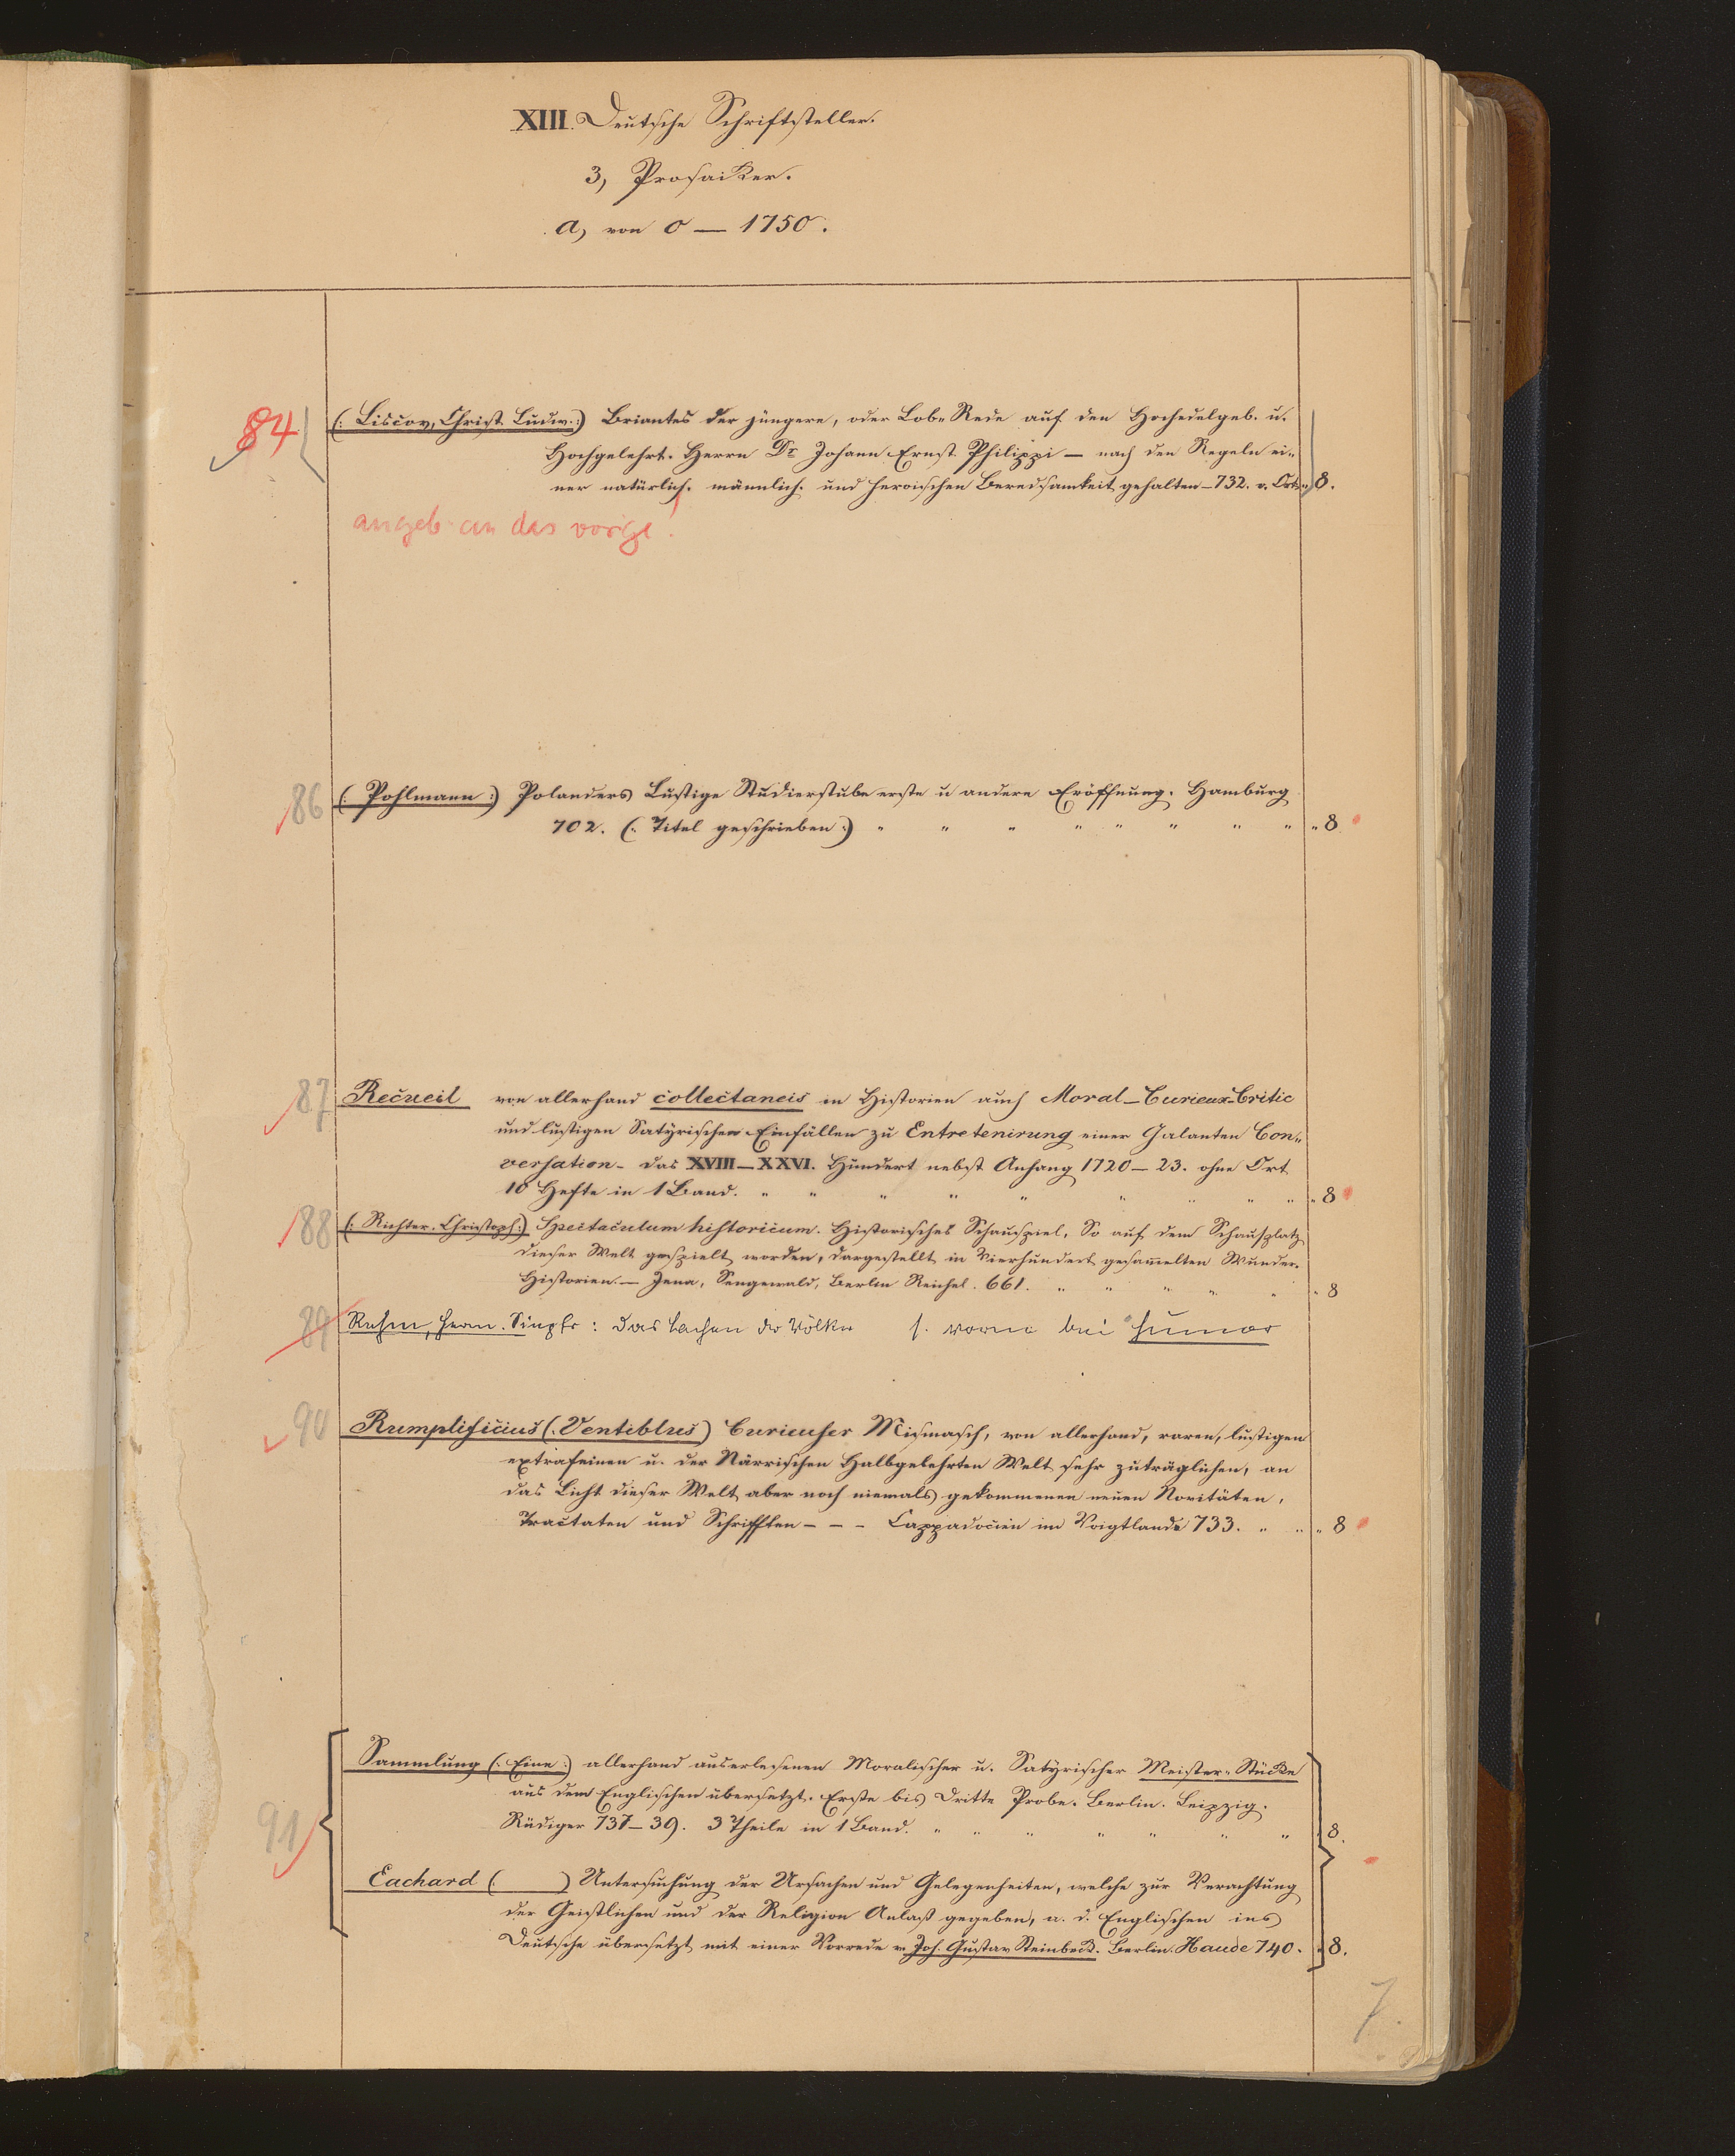 XIII. Deutsche Schriftsteller.
3, Prosaiker.
a, von 0 — 1750.
84 (: Liscov, Christ. Ludw. :) Briontes der jüngere, oder Lob-Rede auf den Hochedelgeb. u.
Hochgelehrt. Herrn Dr Johann Ernst Philippi — nach den Regeln ei-
ner natürlich. männlich. und heroischen Beredsamkeit gehalten — 732. o. Ort " 8.
angeb. an das vorige!
86 (: Pohlmann :) Polanders Lustige Studierstube erste u andere Eröffnung. Hamburg
702. (: Titel geschrieben :) " " " " " " " " " 8
87 Recueil von allerhand collectaneis in Historien auch Moral-Curieux-Critic
und lustigen Satyrischen Einfällen zu Entretenirung einer Galanten Con-
versation - das XVIII — XXVI. Hundert nebst Anhang 1720 — 23. ohne Ort
10 Hefte in 1 Band. " " " " " " " " " " 8
88 (: Richter. Christoph :) Spectaculum historicum. Historisches Schauspiel, So auf dem Schauplatz
dieser Welt gespielt worden, dargestellt in Vierhundert gesammelten Wunder-
Historien. — Jena, Sengewald, Berlin Reichel. 661. " " " " " " 8
89 Rehm, Herm. Siegfr: Das Lachen der Völker s. vorne bei Humor
90 Rumplificius (: Ventiblus) Curieuser Mismasch, von allerhand, raren, lustigen
extrafeinen u. der Närrischen Halbgelehrten Welt sehr zuträglichen, an
das Licht dieser Welt aber noch niemals gekommenen neuen Novitäten,
Tractaten und Schrifften - - - Cappadocien im Voigtlande 733. " " " 8
91 Sammlung (: Eine :) allerhand auserlesenen Moralischer u. Satyrischer Meister-Stücke
aus dem Englischen übersetzt. Erste bis Dritte Probe. Berlin. Leipzig.
Rüdiger 737 — 39. 3 Theile in 1 Band. " " " " " " " 8.
Eachard ( ) Untersuchung der Ursachen und Gelegenheiten, welche zur Verachtung
der Geistlichen und der Religion Anlaß gegeben, a. d. Englischen ins
Deutsche übersetzt mit einer Vorrede v. Joh. Gustav Reinbeck. Berlin. Haude 740. " 8.
7.